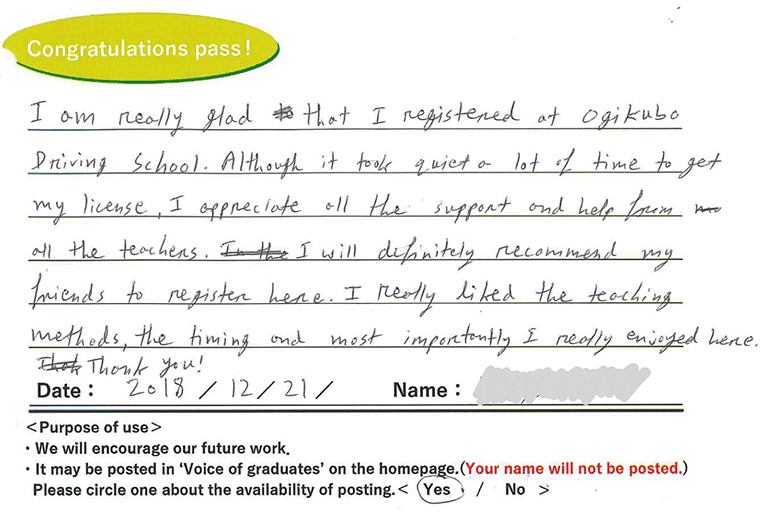 Congratulations pass!
I am really glad to that I registered at Ogikubo
Driving School. Although it took quiet a lot of time to get
my license, I appreciate all the support and help from
all the teachers. In the I will definitely recommend my
friends to register here. I really liked the teaching
methods, the timing and most importantly I really enjoyed here.
Thank you!
Date : 2018 / 12 / 21 / Name :
<Purpose of use>
・We will encourage our future work.
・It may be posted in 'Voice of graduates' on the homepage.(Your name will not be posted.)
Please circle one about the availability of posting.< Yes / No >